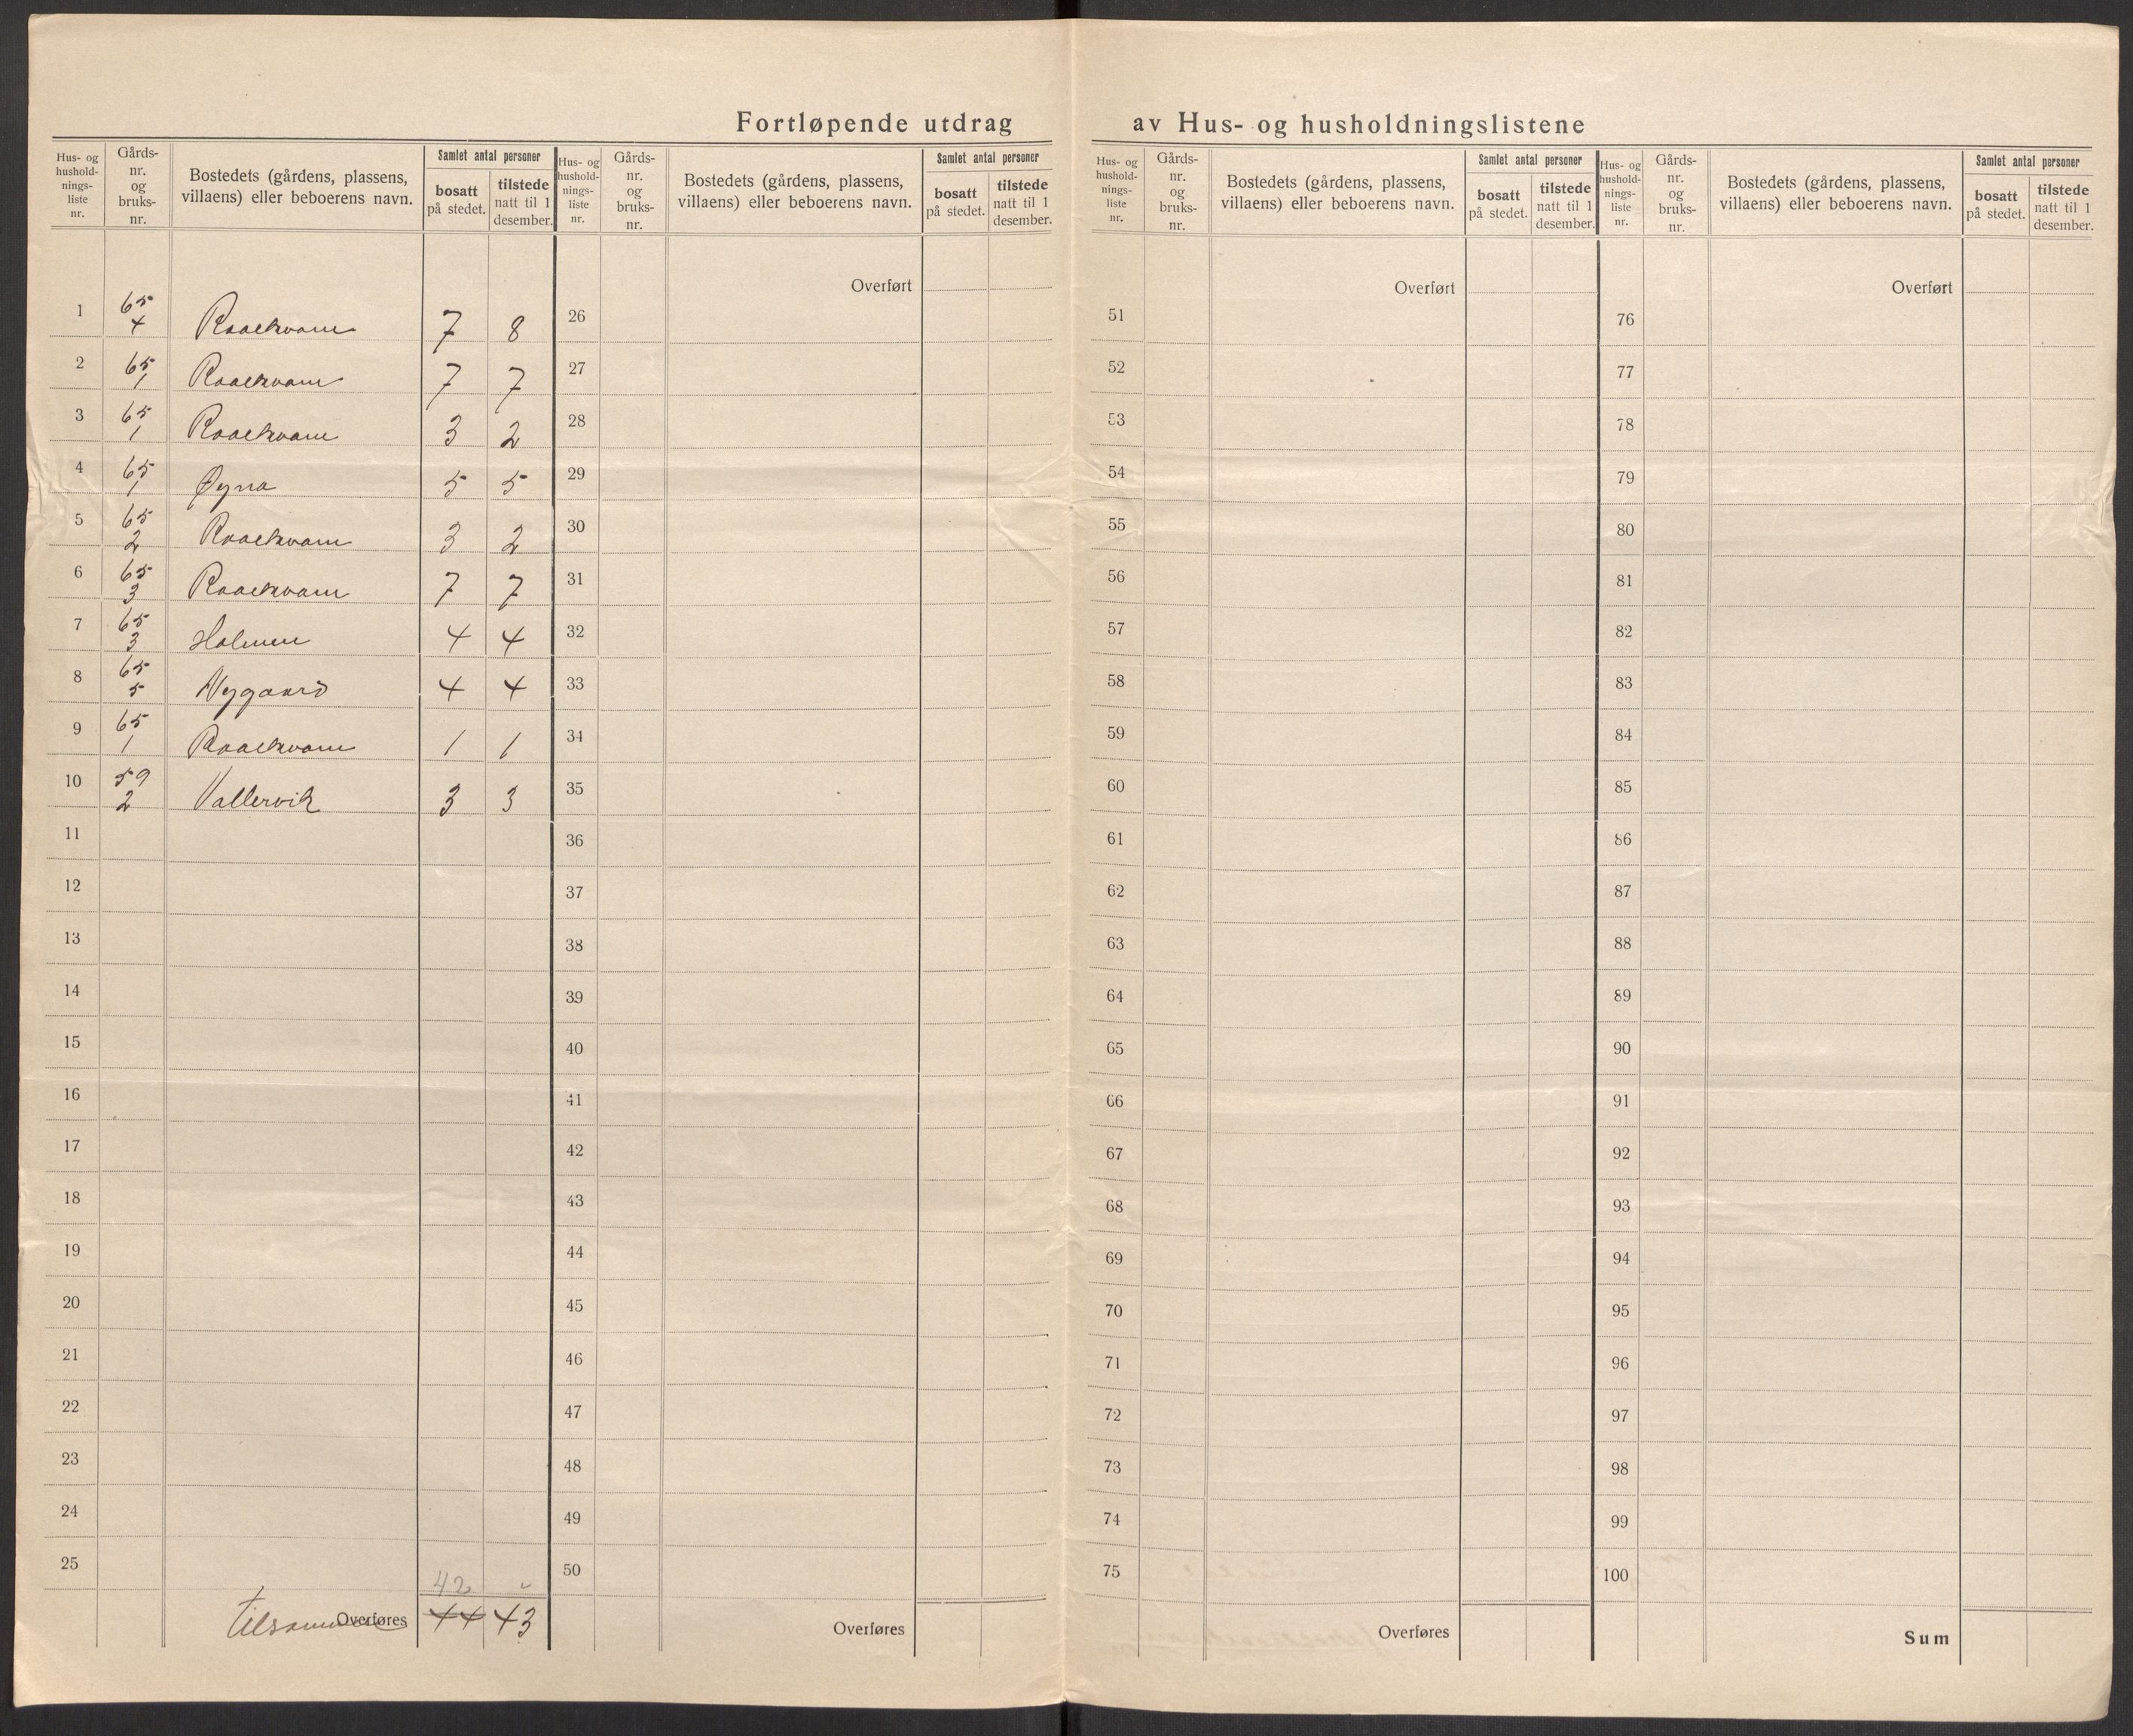 Fortløpende utdrag av Hus- og husholdningslistene
Hus- og hushold-nings-liste nr. Gårds-nr. og bruks-nr. Bostedets (gårdens, plassens, villaens) eller beboerens navn. Samlet antal personer bosatt på stedet. tilstede natt til 1 desember.
1 65 4 Raaekvam 7 8
2 65 1 Raaekvam 7 7
3 65 1 Raaekvam 3 2
4 65 1 Øyna 5 5
5 65 2 Raaekvam 3 2
6 65 3 Raaekvam 7 7
7 65 3 Holmen 4 4
8 65 5 Nygaard 4 4
9 65 1 Raaekvam 1 1
10 59 2 Vallervik 3 3
11
12
13
14
15
16
17
18
19
20
21
22
23
24
25
42
Tilsammen Overføres 44 43
Hus- og hushold-nings-liste nr. Gårds-nr. og bruks-nr. Bostedets (gårdens, plassens, villaens) eller beboerens navn. Samlet antal personer bosatt på stedet. tilstede natt til 1 desember.
Overført
26
27
28
29
30
31
32
33
34
35
36
37
38
39
40
41
42
43
44
45
46
47
48
49
50
Overføres
Hus- og hushold-nings-liste nr. Gårds-nr. og bruks-nr. Bostedets (gårdens, plassens, villaens) eller beboerens navn. Samlet antal personer bosatt på stedet. tilstede natt til 1 desember.
Overført
51
52
53
54
55
56
57
58
59
60
61
62
63
64
65
66
67
68
69
70
71
72
73
74
75
Overføres
Hus- og hushold-nings-liste nr. Gårds-nr. og bruks-nr. Bostedets (gårdens, plassens, villaens) eller beboerens navn. Samlet antal personer bosatt på stedet. tilstede natt til 1 desember.
Overført
76
77
78
79
80
81
82
83
84
85
86
87
88
89
90
91
92
93
94
95
96
97
98
99
100
Sum